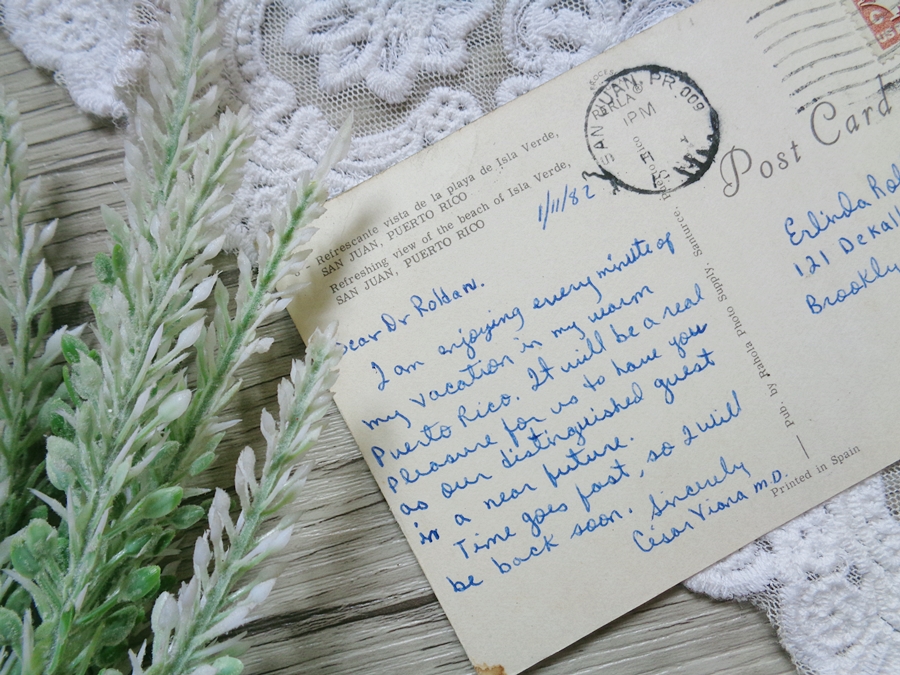 Refrescante vista de la playa de Isla Verde,
SAN JUAN, PUERTO RICO
Refreshing view of the beach of Isla Verde,
SAN JUAN, PUERTO RICO
1/11/82
Dear Dr Roldan.
I am enjoying every minute of
my vacation in my warm
Puerto Rico. It will be a real
pleasure for us to have you
as our distinguished guest
in a near future.
Time goes fast, so I will
be back soon. Sincerely
César Viara M.D.
Pub by Rahola Photo Supply, Santurce, Puerto Rico
Printed in Spain
SAN JUAN, PR 009
PM
Post Card
Erlinda Rol
121 DeKal
Brooklyn